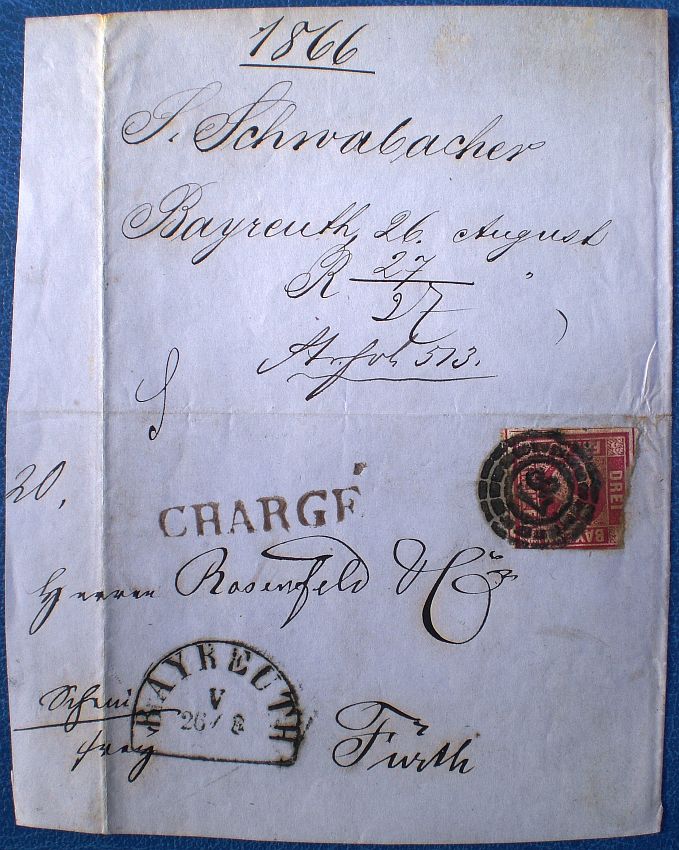 1866
S. Schwabacher
Bayreuth, 26. August
R 27 "
27
513.
20,
CHARGÉ
DREI
BAY
Herren Rosenfeld & Co
BAYREUTH
V
26/8
Schein
frey
Fürth